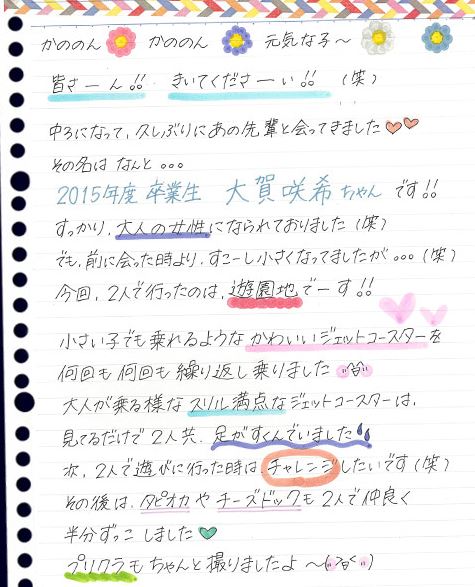 かののん かののん 元気な子〜
皆さーん!! きいてくださーい!! (笑)
中3になって、久しぶりにあの先輩と会ってきました
その名は なんと。。。
2015年度 卒業生 大賀咲希ちゃんです!!
すっかり、大人の女性になられておりました(笑)
でも、前に会った時より、すこーし小さくなってましたが。。。(笑)
今回、2人で行ったのは、遊園地でーす!!
小さい子でも乗れるような かわいいジェットコースターを
何回も何回も繰り返し乗りました
大人が乗る様な スリル満点なジェットコースターは、
見てるだけで2人共、足がすくんでいました
次、2人で遊びに行った時は、チャレンジしたいです(笑)
その後は、タピオカや チーズドックも2人で仲良く
半分ずっこしました
プリクラもちゃんと撮りましたよ〜